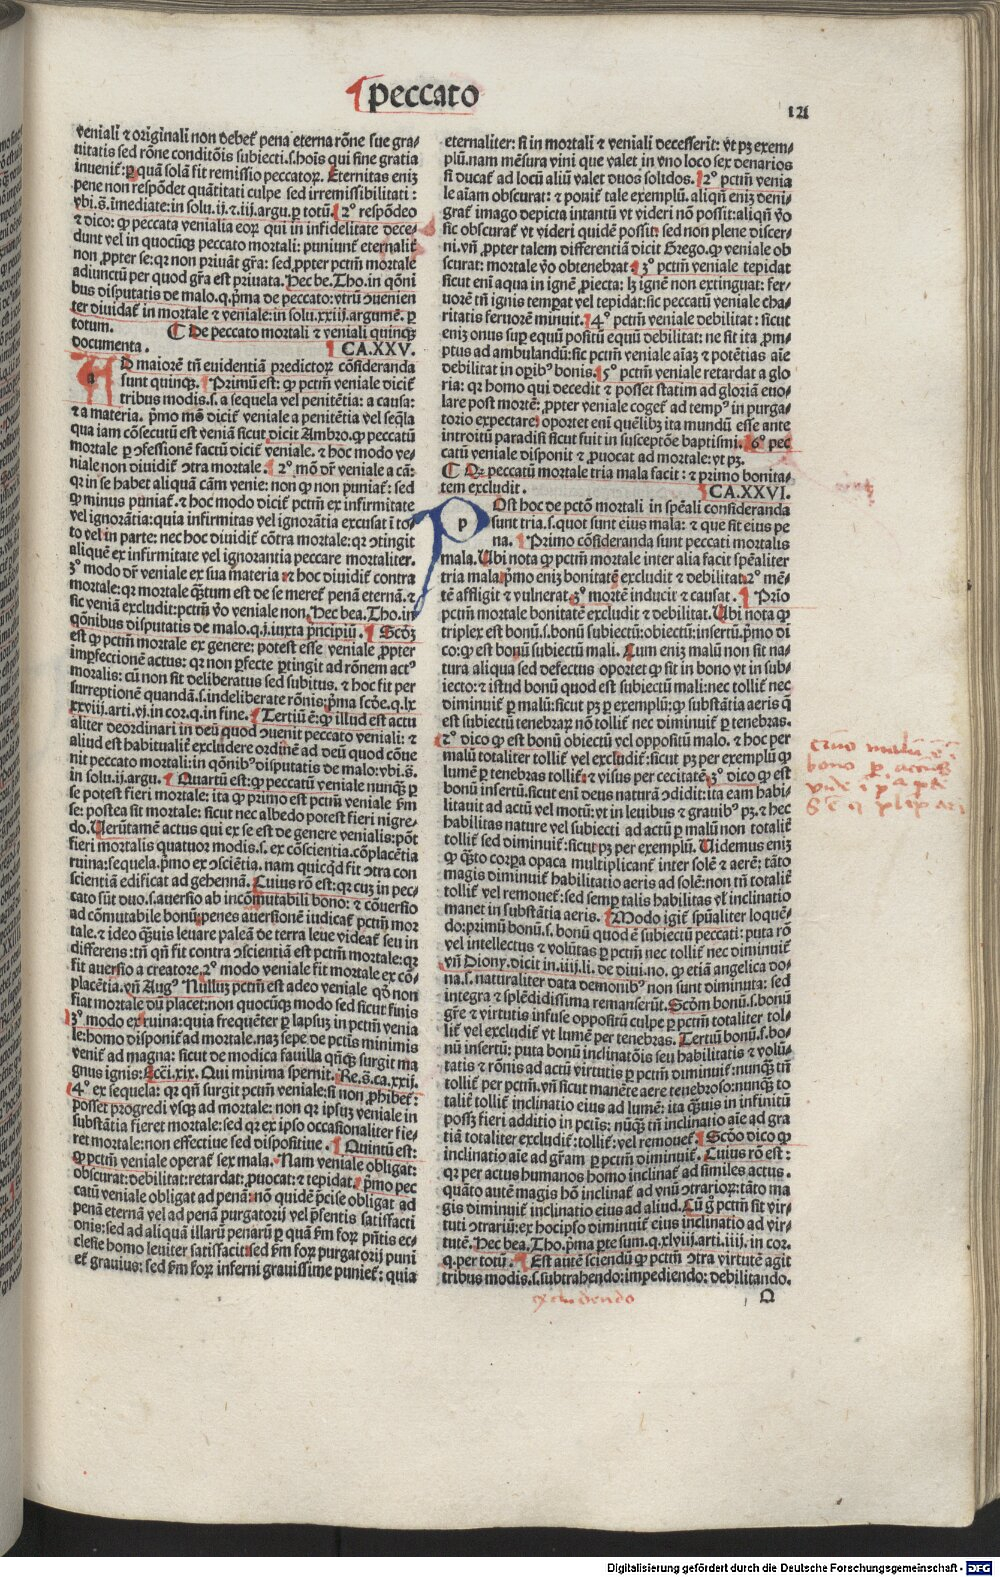 peccato
121
veniali ⁊ originali non debet̄ pena eterna rōne sue gra-
uitatis sed rōne conditōis subiecti.s.hoīs qui sine gratia
inuenit̄: ꝑ quā solā fit remissio peccatoꝝ. Eternitas eniꝫ
pene non respōdet quātitati culpe sed irremissibilitati:
vbi.s̄.īmediate:in solu.ij.⁊.iij.argu.ꝑ totū. 2º respōdeo
⁊ dico: ꝙ peccata venialia eoꝝ qui in infidelitate dece-
dunt vel in quocūqꝫ peccato mortali: puniunt̄ eternalit̄
non ꝓpter se: qꝛ non priuāt gr̄a: sed ꝓpter pctm̄ mortale
adiunctū per quod gr̄a est priuata. Hec be. Tho.in q̄oni
bus disputatis de malo.q.pma de peccato: vtrū ꝯuenien
ter diuidat̄ in mortale ⁊ veniale: in solu.xxiij.argumē. ꝑ
totum. ¶ De peccato mortali ⁊ veniali quinqꝫ
documenta. CA.XXV.
AD maiorē tn̄ euidentiā predictoꝝ cōsideranda
sunt quinqꝫ. ¶ Primū est: ꝙ pctm̄ veniale dicit̄
tribus modis.s.a sequela vel penitētia: a causa:
⁊ a materia. pmo mō dicit̄ veniale a penitētia vel seq̄la
qua iam cōsecutū est veniā sicut dicit Ambro.ꝙ peccatū
mortale ꝑ ꝯfessionē factū dicit̄ veniale. ⁊ hoc modo ve-
niale non diuidit̄ ꝯtra mortale. ¶ 2º mō dr̄ veniale a cā:
qꝛ in se habet aliquā cām venie: non ꝙ non puniat̄: sed
ꝙ minus puniat̄. ⁊ hoc modo dicit̄ pctm̄ ex infirmitate
vel ignorātia: quia infirmitas vel ignorātia excusat ī to-
to vel in parte: nec hoc diuidit̄ cōtra mortale: qꝛ ꝯtingit
aliquē ex infirmitate vel ignorantia peccare mortaliter.
3º modo dr̄ veniale ex sua materia ⁊ hoc diuidit̄ contra
mortale: qꝛ mortale q̄ꝫtum est de se meret̄ penā eternā. ⁊
sic veniā excludit: pctm̄ v̄o veniale non. Hec bea. Tho.in
q̄ōnibus disputatis de malo.q.j.iuxta pncipiū. ¶ Scd̄ꝫ
est ꝙ pctm̄ mortale ex genere: potest esse veniale ꝓpter
imꝑfectionē actus: qꝛ non ꝑfecte ꝑtingit ad rōnem actꝰ
moralis: cū non sit deliberatus sed subitus. ⁊ hoc fit per
surreptionē quandā.s.indeliberate rōnis: pma scd̄e.q.lx
xxviij.arti.vj.in cor.q.in fine. ¶ Tertiū ē: ꝙ illud est actu
aliter deordinari in deū quod ꝯuenit peccato veniali: ⁊
aliud est habitualit̄ excludere ordinē ad deū quod cōue
nit peccato mortali: in q̄onibꝰ disputatis de malo: vbi.s̄.
in solu.ij.argu. ¶ Quartū est: ꝙ peccatū veniale nunqꝫ ꝑ
se potest fieri mortale: ita ꝙ primo est pctm̄ veniale s̄m
se: postea sit mortale: sicut nec albedo potest fieri nigre-
do. Uerūtamē actus qui ex se est de genere venialis: pōt
fieri mortalis quatuor modis.s. ex cōscientia. cōplacētia
ruina: sequela. pmo ex ꝯsciētia. nam quicqd fit ꝯtra con
scientiā edificat ad gehennā. Cuius rō est: qꝛ cuꝫ in pec-
cato sūt duo.s.auersio ab incōmutabili bono: ⁊ cōuersio
ad cōmutabile bonū: penes auersionē iudicat̄ pctm̄ mor
tale. ⁊ ideo q̄ꝫuis leuare paleā de terra leue videat̄ seu in
differens: tn̄ qn̄ fit contra ꝯscientiā est pctm̄ mortale: qꝛ
fit auersio a creatore. 2º modo veniale fit mortale ex cō-
placētia. vn̄ Augꝰ Nulluꝫ pctm̄ est adeo veniale qd̄ non
fiat mortale dū placet: non quocūqꝫ modo sed sicut finis
3º modo ex ruina: quia frequēter ꝑ lapsuꝫ in pctm̄ venia
le: homo disponit̄ ad mortale. naꝫ sepe de pctīs minimis
venit̄ ad magna: sicut de modica fauilla qn̄qꝫ surgit ma
gnus ignis: Ecci.xix. Qui minima spernit. Re.s̄.ca.xxij.
4º ex sequela: qꝛ qn̄ surgit pctm̄ veniale: si non ꝓhibet̄:
posset progredi vsqꝫ ad mortale: non qꝛ ipsuꝫ veniale in
substātia fieret mortale: sed qꝛ ex ipso occasionaliter fie-
ret mortale: non effectiue sed dispositiue. ¶ Quintū est:
ꝙ pctm̄ veniale operat̄ sex mala. Nam veniale obligat:
obscurat: debilitat: retardat: ꝓuocat: ⁊ tepidat. pmo pec
catū veniale obligat ad penā: nō quidē pcise obligat ad
penā eternā vel ad penā purgatorij vel pn̄tis satisfacti
onis: sed ad aliquā illarū penarū ꝑ quā s̄m foꝝ pn̄tis ec-
clesie homo leuiter satisfacit: sed s̄m foꝝ purgatorij puni
et̄ grauius: sed s̄m foꝝ inferni grauissime puniet̄: quia
eternaliter: si in mortali ⁊ veniali decesserit: vt pꝫ exem-
plū. nam mēsura vini que valet in vno loco sex denarios
si ducat̄ ad locū aliū valet duos solidos. ¶ 2º pctm̄ venia
le aīam obscurat: ⁊ ponit̄ tale exemplū. aliqn̄ eniꝫ deni-
grat̄ imago depicta intantū vt videri nō possit: aliqn̄ v̄o
sic obscurat̄ vt videri quidē possit: sed non plene discer-
ni. vn̄ ꝓpter talem differentiā dicit Grego.ꝙ veniale ob
scurat: mortale v̄o obtenebrat. 3º pctm̄ veniale tepidat
sicut eni aqua in ignē ꝓiecta: lꝫ ignē non extinguat: fer-
uorē tn̄ ignis temꝑat vel tepidat: sic peccatū veniale cha-
ritatis feruorē minuit. ¶ 4º pctm̄ veniale debilitat: sicut
eniꝫ onus suꝑ equū positū equū debilitat: ne sit ita ꝓm-
ptus ad ambulandū: sic pctm̄ veniale aīaꝫ ⁊ potētias aīe
debilitat in oꝑibꝰ bonis. 5º pctm̄ veniale retardat a glo
ria: qꝛ homo qui decedit ⁊ posset statim ad gloriā euo-
lare post mortē: ꝓpter veniale coget̄ ad tempꝰ in purga-
torio expectare: oportet eni quēlibꝫ ita mundū esse ante
introitū paradisi sicut fuit in susceptōe baptismi. 6º pec
catū veniale disponit ⁊ ꝓuocat ad mortale: vt pꝫ.
¶ Qꝛ peccatū mortale tria mala facit: ⁊ primo bonita-
tem excludit. CA.XXVI.
POst hoc de pctō mortali in spēali consideranda
sunt tria.s.quot sunt eius mala: ⁊ que sit eius pe
na. ¶ Primo cōsideranda sunt peccati mortalis
mala. Ubi nota ꝙ pctm̄ mortale inter alia facit spēaliter
tria mala. pmo eniꝫ bonitatē excludit ⁊ debilitat. 2º mē-
tē affligit ⁊ vulnerat. 3º mortē inducit ⁊ causat. ¶ Prīo
pctm̄ mortale bonitatē excludit ⁊ debilitat. Ubi nota ꝙ
triplex est bonū.s.bonū subiectū: obiectū: insertū. pmo di
co: ꝙ est bonū subiectū mali. Cum eniꝫ malū non sit na-
tura aliqua sed defectus oportet ꝙ sit in bono vt in sub-
iecto: ⁊ istud bonū quod est subiectū mali: nec tollit̄ nec
diminuit̄ ꝑ malū: sicut pꝫ ꝑ exemplū: ꝙ substātia aeris q̄
est subiectū tenebraꝝ nō tollit̄ nec diminuit̄ ꝑ tenebras.
2º dico ꝙ est bonū obiectū vel oppositū malo. ⁊ hoc per
malū totaliter tollit̄ vel excludit̄: sicut pꝫ per exemplū ꝙ
lumē ꝑ tenebras tollit̄: ⁊ visus per cecitatē. 3º dico ꝙ est
bonū insertū. sicut eni deus naturā ꝯdidit: ita eam habi-
litauit ad actū vel motū: vt in leuibus ⁊ grauibꝰ pꝫ. ⁊ hec
habilitas nature vel subiecti ad actū ꝑ malū non totalit̄
tollit̄ sed diminuit̄: sicut pꝫ per exemplū. Uidemus eniꝫ
ꝙ q̄ꝫto corꝑa opaca multiplicant̄ inter solē ⁊ aerē: tāto
magis diminuit̄ habilitatio aeris ad solē: non tn̄ totalit̄
tollit̄ vel remouet̄: sed semꝑ talis habilitas vl̄ inclinatio
manet in substātia aeris. ¶ Modo igit̄ spūaliter loquē-
do: primū bonū.s. bonū quod ē subiectū peccati: puta rō
vel intellectus ⁊ volūtas ꝑ pctm̄ nec tollit̄ nec diminuit̄
vn̄ Diony. dicit in.iiij.li. de diui.no. ꝙ etiā angelica do-
na.s. naturaliter data demonibꝰ non sunt diminuta: sed
integra ⁊ splēdidissima remanserūt. Scd̄m bonū.s.bonū
gr̄e ⁊ virtutis infuse oppositū culpe ꝑ pctm̄ totaliter tol-
lit̄ vel excludit̄ vt lumē per tenebras. Tertiū bonū.s.bo-
nū insertū: puta bonū inclinatōis seu habilitatis ⁊ volū-
tatis ⁊ rōnis ad actū virtutis ꝑ pctm̄ diminuit̄: nunqꝫ tn̄
tollit̄ per pctm̄. vn̄ sicut manēte aere tenebroso: nunqꝫ to
talit̄ tollit̄ inclinatio eius ad lumē: ita q̄ꝫuis in infinitū
possꝫ fieri additio in pctīs: nūqꝫ tn̄ inclinatio aīe ad gra
tiā totaliter excludit̄: tollit̄: vel remouet̄. ¶ Scd̄o dico ꝙ
inclinatio aīe ad gr̄am ꝑ pctm̄ diminuit̄. Cuius rō est:
qꝛ per actus humanos homo inclinat̄ ad similes actus.
quāto autē magis hō inclinat̄ ad vnū ꝯtrarioꝝ: tāto ma
gis diminuit̄ inclinatio eius ad aliud. Cū g̊ pctm̄ sit vir-
tuti ꝯtrariū: ex hocipso diminuit̄ eius inclinatio ad vir-
tutē. Hec bea. Tho. pma parte sum.q.xlviij.arti.iiij. in cor.
q.per totū. ¶ Est autē sciendū ꝙ pctm̄ ꝯtra virtutē agit
tribus modis.s.subtrahendo: impediendo: debilitando.
excludendo
Q
Digitalisierung gefördert durch die Deutsche Forschungsgemeinschaft - DFG